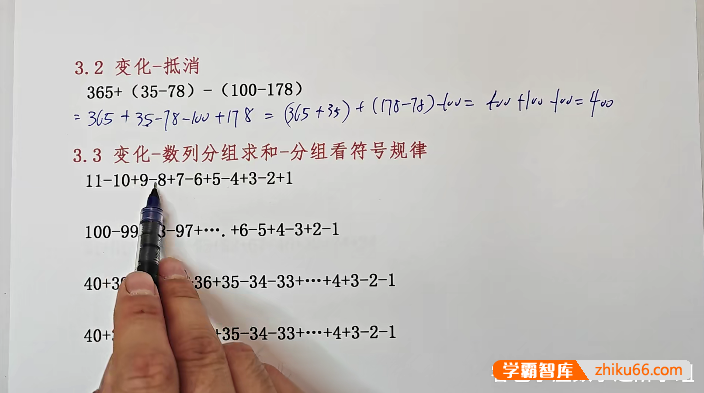 3.2 变化-抵消
365+（35-78）-（100-178）
= 365 + 35-78-100+178 = (365+35) + (178-78) -100 = 400 +100 -100 = 400
3.3 变化-数列分组求和-分组看符号规律
11-10+9-8+7-6+5-4+3-2+1
100-99 -97+….+6-5+4-3+2-1
40+3 36+35-34-33+…+4+3-2-1
40+ 35-34-33+…+4+3-2-1
学霸智库 zhiku66.com